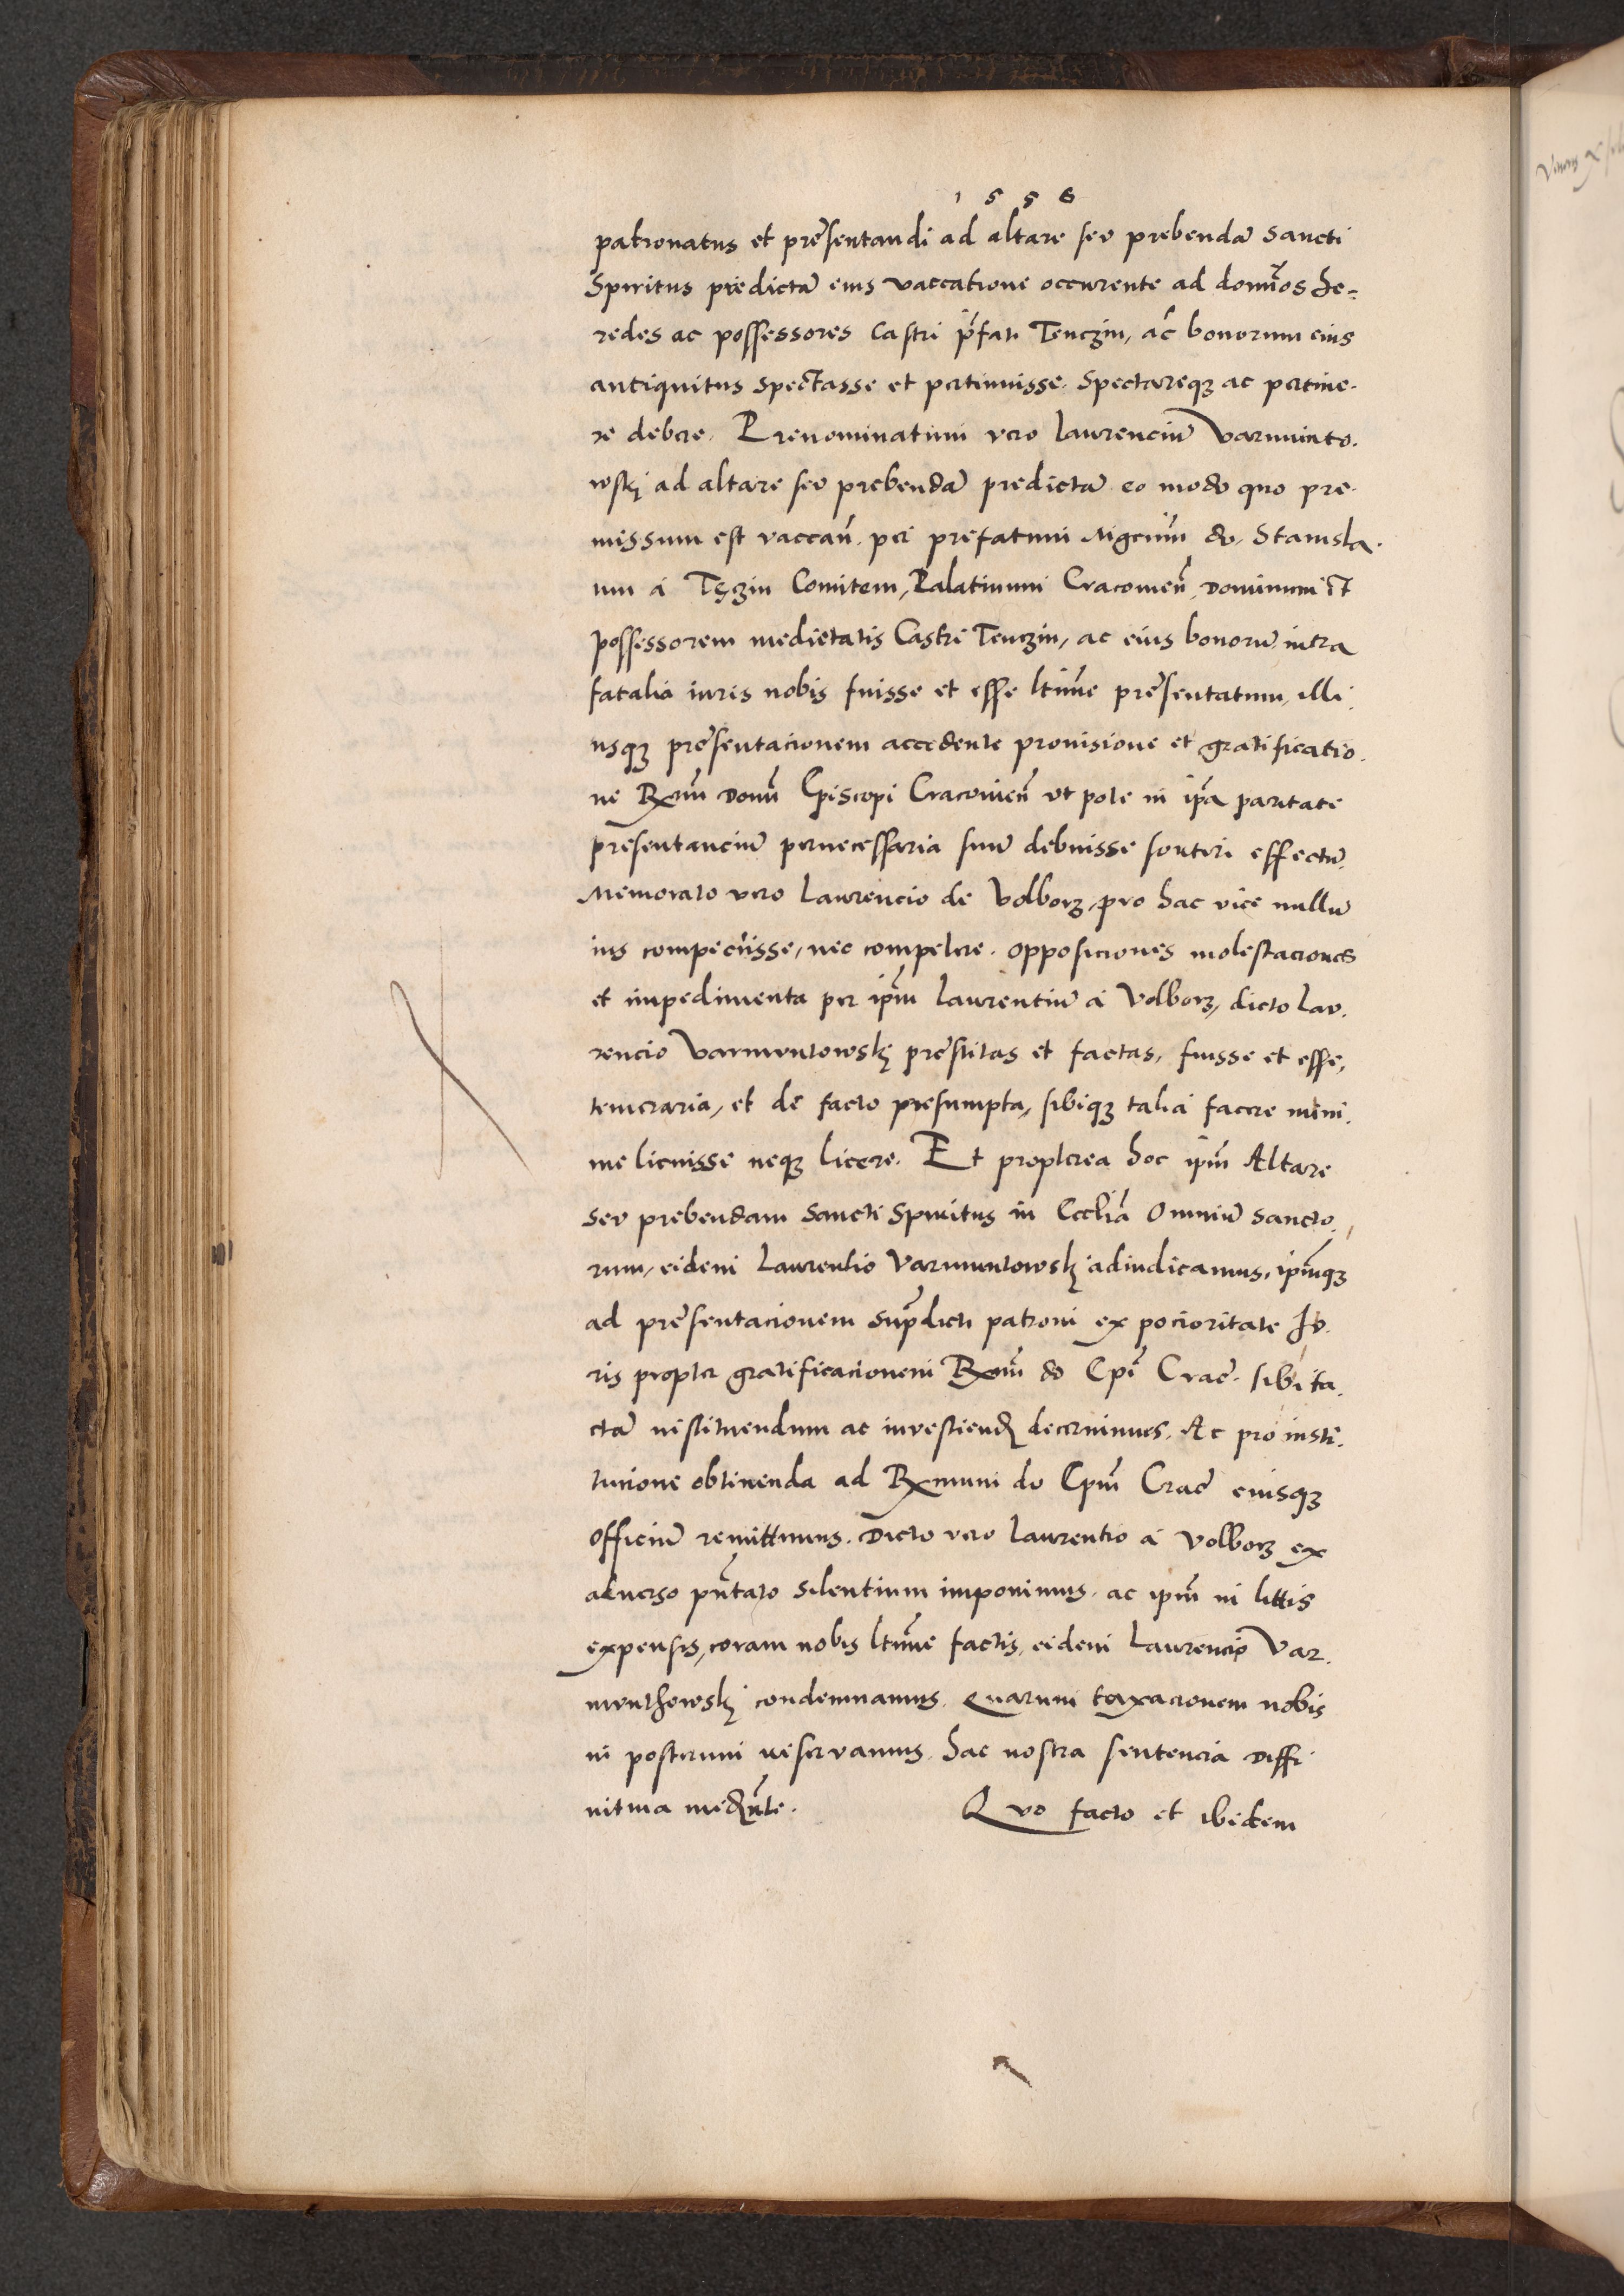 1556
patronatus et presentandi ad altare seu prebendā Sancti
Spiritus predictā eius vaccatione occurente ad domīos he=
redes ac possessores Castri p̄fati Tenczin, ac bonorum eius
antiquitus spectasse et pertinuisse. Spectareqȝ ac pertine.
re debere. Prenominatum vero Laurenciū Varmunto.
wskj ad altare seu prebendā predictā eo modo quo pre.
missum est vaccań. per prefatum Mgcum̄ do. Stanisla.
um a Tęzin Comitem, Palatinum Cracouień. Dominum et
possessorem medietatis Castri Tenczin, ac eius bonorū intra
fatalia iuris nobis fuisse et esse ltīme presentatum, illi.
usqȝ presentacionem accedente prouisione et gratificatio.
ne Rxmī Domī Episcopi Cracouień ut pote in ip̄a paritate
presentanciū pernecessaria suū debuisse sortiri effectū.
Memorato vero Laurencio de Volborz, pro hac vice nullū
ius compeciisse, nec competere. Opposiciones molestaciones
et impedimenta per ip̄m Laurentiū a Volborz, dicto Lau.
rencio Varmuntowskj prestitas et factas, fuisse et esse,
temeraria, et de facto presumpta, sibiqȝ talia facere mini.
me licuisse neqȝ licere. Et propterea hoc ip̄m Altare
seu prebendam Sancti Spiritus in Eccliā Omniū Sancto.
rum, eidem Laurentio Varmuntowskj adiudicamus, ip̄mqȝ
ad presentacionem sup̄dicti patroni ex pocioritate Iu.
ris propter gratificacionem Rxmī do Ep̄i Crac̄. sibi fa.
ctā instituendum ac investiend̄ decernimus. Ac pro insti.
tucione obtinenda ad Rxmum do Ep̄m Crac̄ eiusqȝ
Officiū remittimus. Dicto vero Laurentio a Volborz ex
aduerso pn̄tato silentium imponimus. ac ip̄m in littis
expensis, coram nobis ltīme factis, eidem Laurencio Var.
munthowskj condemnamus. Quarum taxacionem nobis
in posterum reservamus. hac nostra sentencia diffi
nitiua med̄nte. Quo facto et ibidem